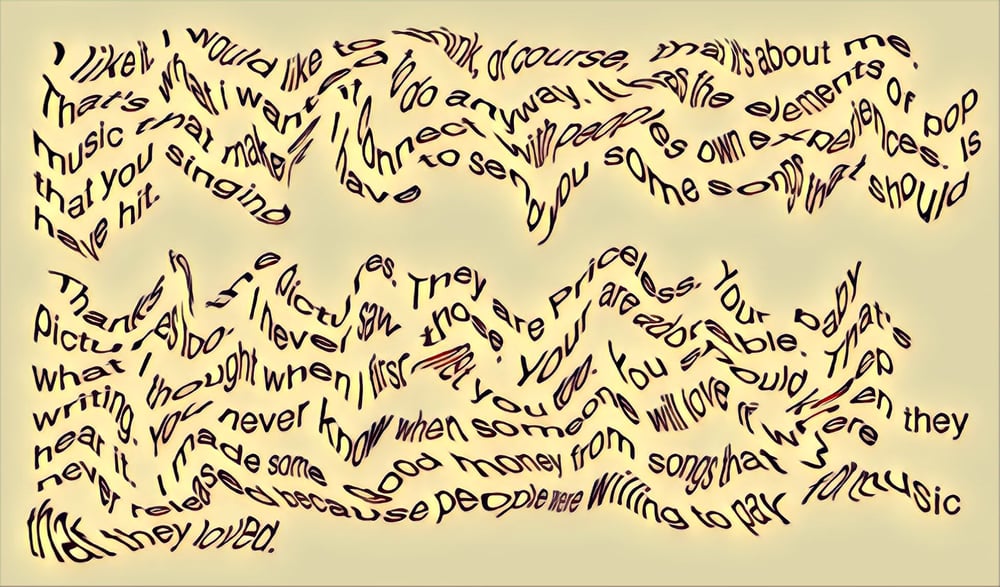 I like it. I would like to think, of course, that it's about me.
That's what i want to do anyway. It has the elements of pop
music that make it connect with peoples own experiences. Is
that you singing I have to send you some songs that should
have hit.
Thanks pictures. They are Priceless. Your baby
Pictures too. I never saw those. Your are adorable. That's
what I thought when I first met you too. You should keep
writing. You never know when someone will love it when they
hear it. I made some good money from songs that were
never released because people were willing to pay for music
that they loved.